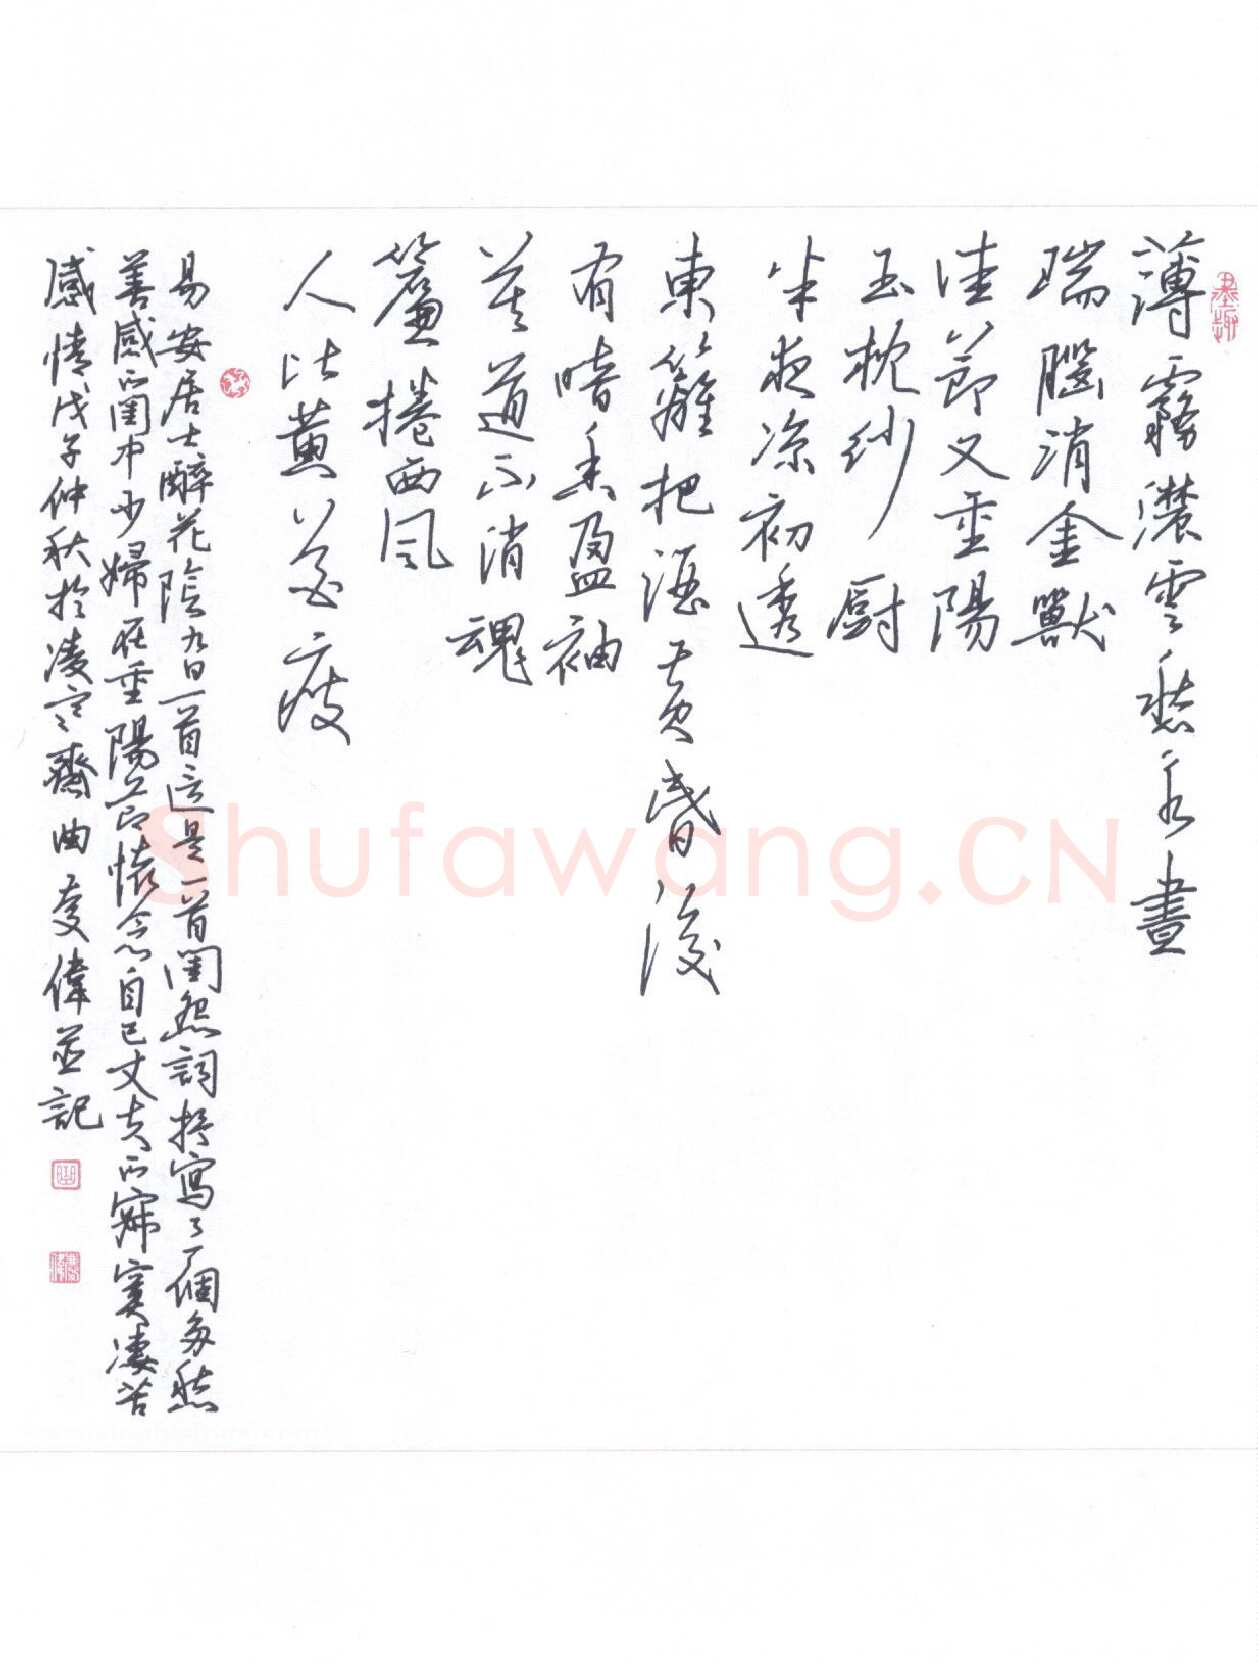 薄霧濃雲愁永晝
瑞腦消金獸
佳節又重陽
玉枕紗厨
半夜涼初透
東籬把酒黃昏後
有暗香盈袖
莫道不消魂
簾捲西風
人比黃花瘦
易安居士醉花陰九日一首這是一首閨怨詞描寫了一個多愁
善感而閨中少婦在重陽節懷念自己丈夫而寂寞淒苦
感情戊子仲秋於凌寒齋曲慶偉並記
Shufawang.CN